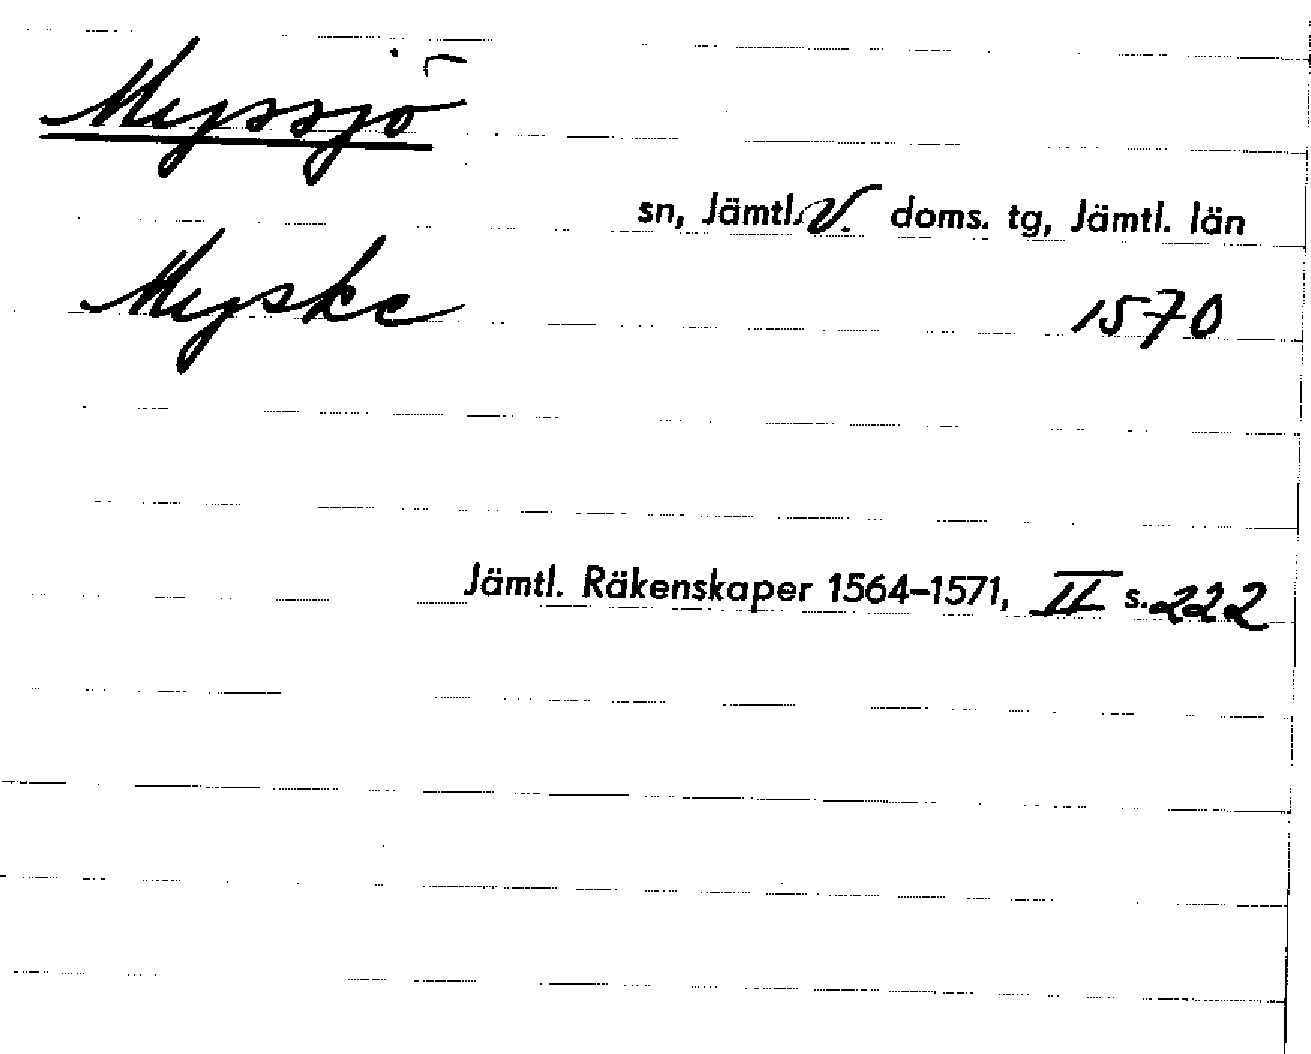 Myssjö
sn, Jämtl. V. doms. tg, Jämtl. län
Myske 1570
Jämtl. Räkenskaper 1564–1571, II s. 222